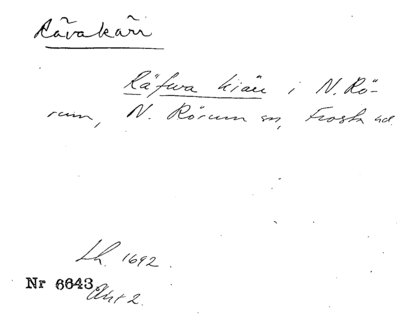 Rävakärr
Räfwa kiärr i N. Rö-
rum, N. Rörum sn, Frosta hd
Lh. 1692.
Nr 6643
Akt 2.